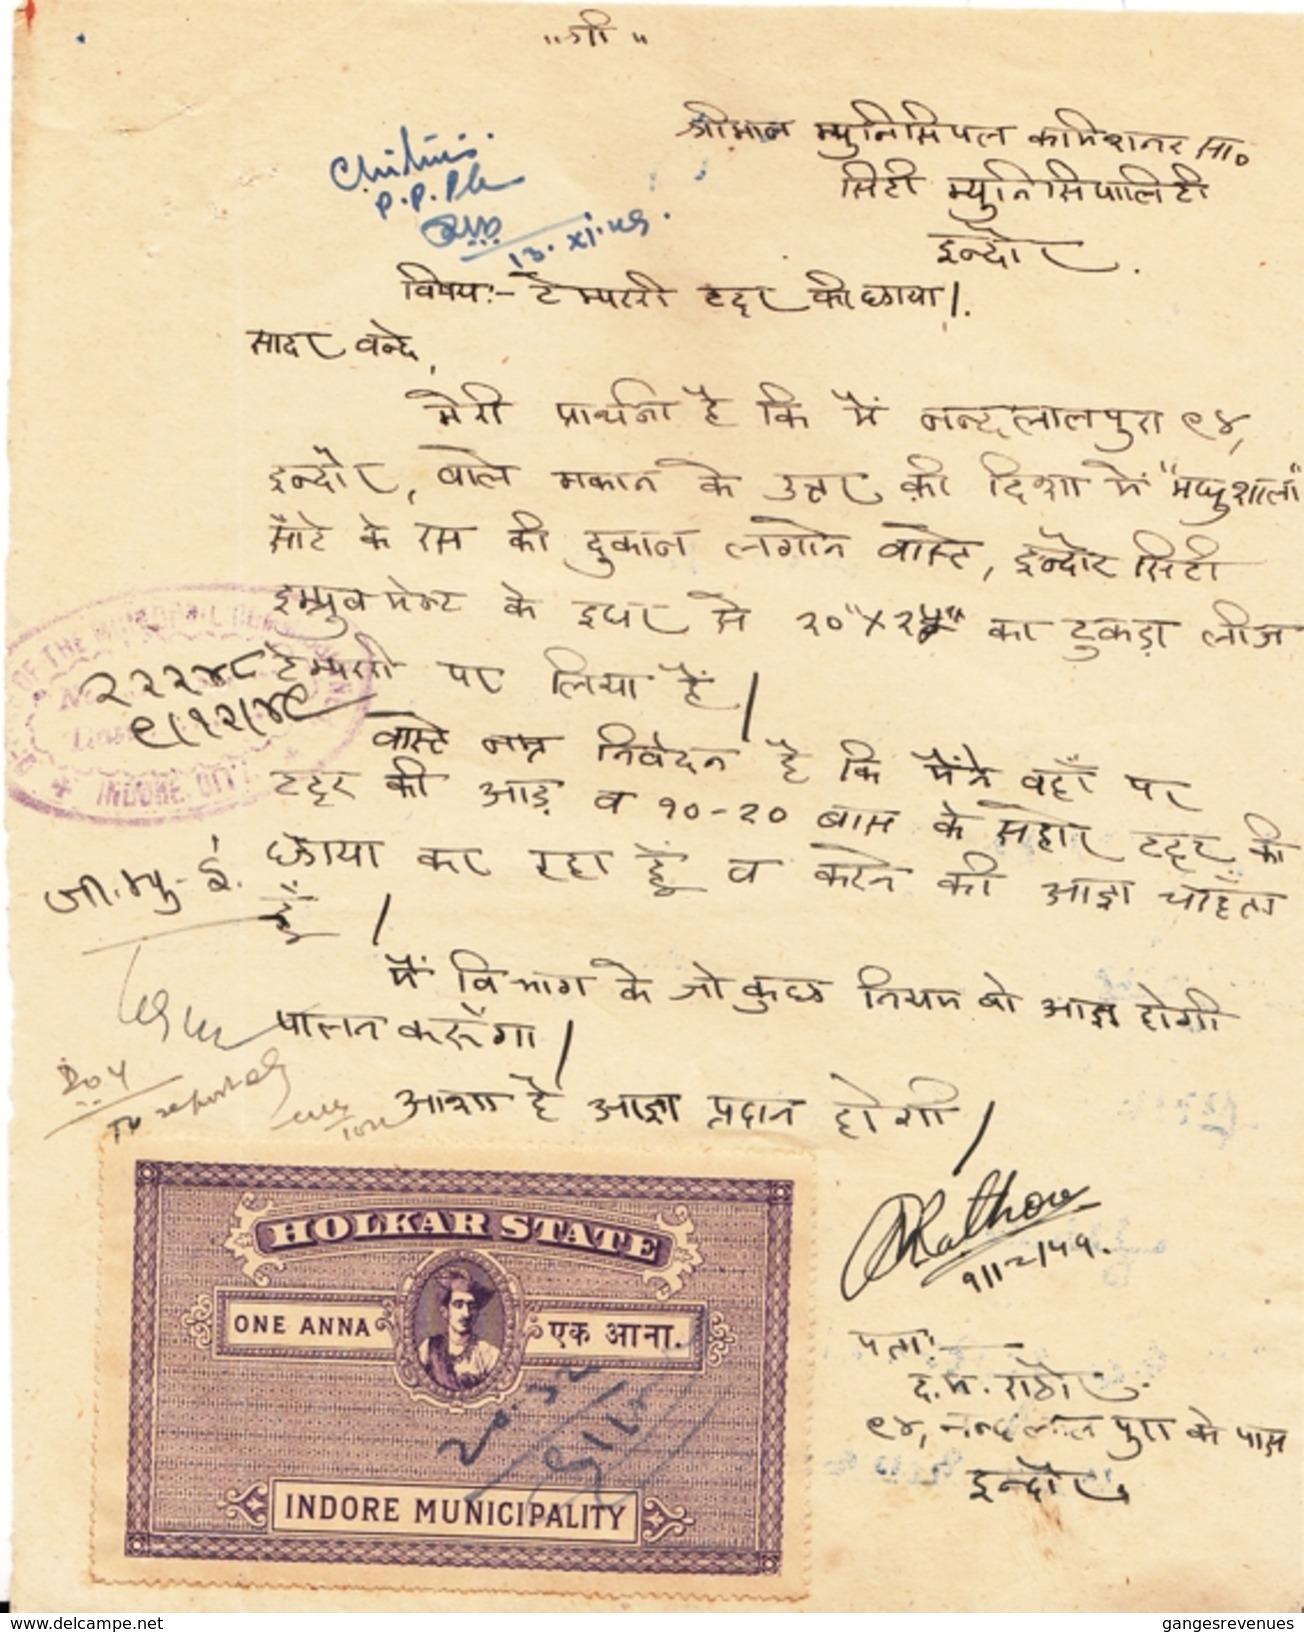 "श्री"
श्रीमान म्युनिसिपल कमिशनर सा०
सिटी म्युनिसिपालिटी
इन्दौर.
P.P.Pla
13.XI.49.
विषय:- टेम्परी टट्टर की छाया।
सादर वन्दे,
मेरी प्रार्थना है कि मैं नन्दलालपुरा ९४,
इन्दौर, वाले मकान के उत्तर की दिशा में "मधुशाला"
सांटे के रस की दुकान लगाने वास्ते, इन्दौर सिटी
इम्प्रुवमेन्ट के इधर से का टुकड़ा लीज
टेम्परी पर लिया है।
२२२४८
९/१२/४९
वास्ते नम्र निवेदन है कि मैंने वहाँ पर
टट्टर की आड़ व १०-२० बास के सहारे टट्टर की
छाया कर रहा हूँ व करने की आज्ञा चाहता
हूँ।
जी.म्यु.ई.
मैं विभाग के जो कुछ नियम की आज्ञा होगी
पालन करूँगा।
To report
आशा है आज्ञा प्रदान होगी।
Rathore
पता:-
द.म. राठोर.
९४, नन्दलालपुरा के पास
इन्दौर
OF THE MUNICIPAL
INDORE CITY
HOLKAR STATE
ONE ANNA एक आना.
INDORE MUNICIPALITY
www.delcampe.net
gangesrevenues